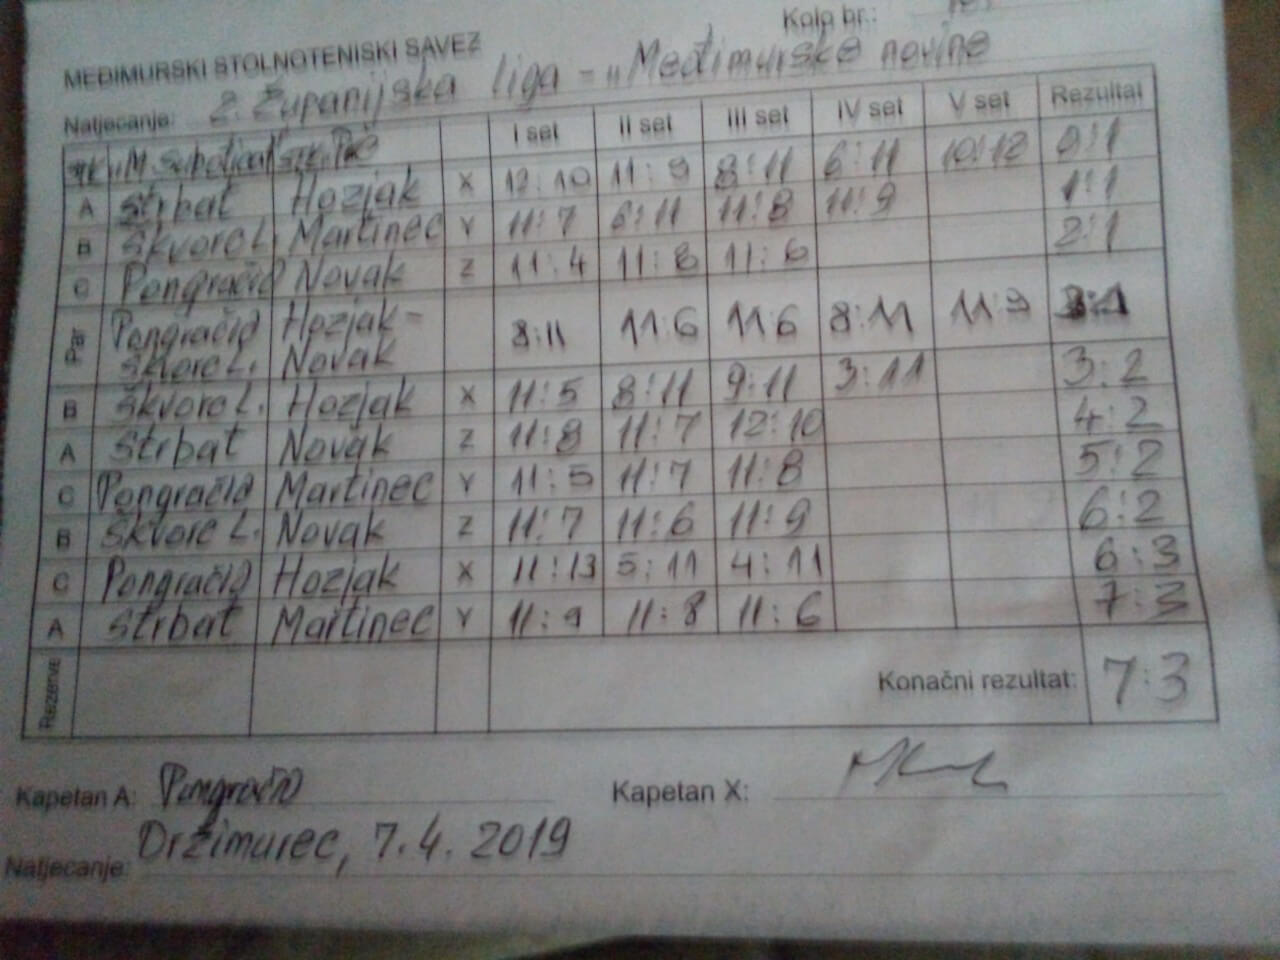 Kolo br.:
MEĐIMURSKI STOLNOTENISKI SAVEZ
Natjecanje: 2. Županijska liga = „Međimurske novine
I set II set III set IV set V set Rezultat
A Štrbat Hozjak X 12:10 11:9 8:11 6:11 10:12 0:1
B Škvorc L. Martinec Y 11:7 6:11 11:8 11:9 1:1
C Pongračić Novak Z 11:4 11:8 11:6 2:1
Par Pongračić Hozjak - 8:11 11:6 11:6 8:11 11:9 3:1
Škvorc L. Novak
B Škvorc L. Hozjak X 11:5 8:11 9:11 3:11 3:2
A Štrbat Novak Z 11:8 11:7 12:10 4:2
C Pongračić Martinec Y 11:5 11:7 11:8 5:2
B Škvorc L. Novak Z 11:7 11:6 11:9 6:2
C Pongračić Hozjak X 11:13 5:11 4:11 6:3
A Štrbat Martinec Y 11:9 11:8 11:6 7:3
Rezerve Konačni rezultat: 7:3
Kapetan A: Pongračić Kapetan X:
Držimurec, 7.4. 2019
Natjecanje: